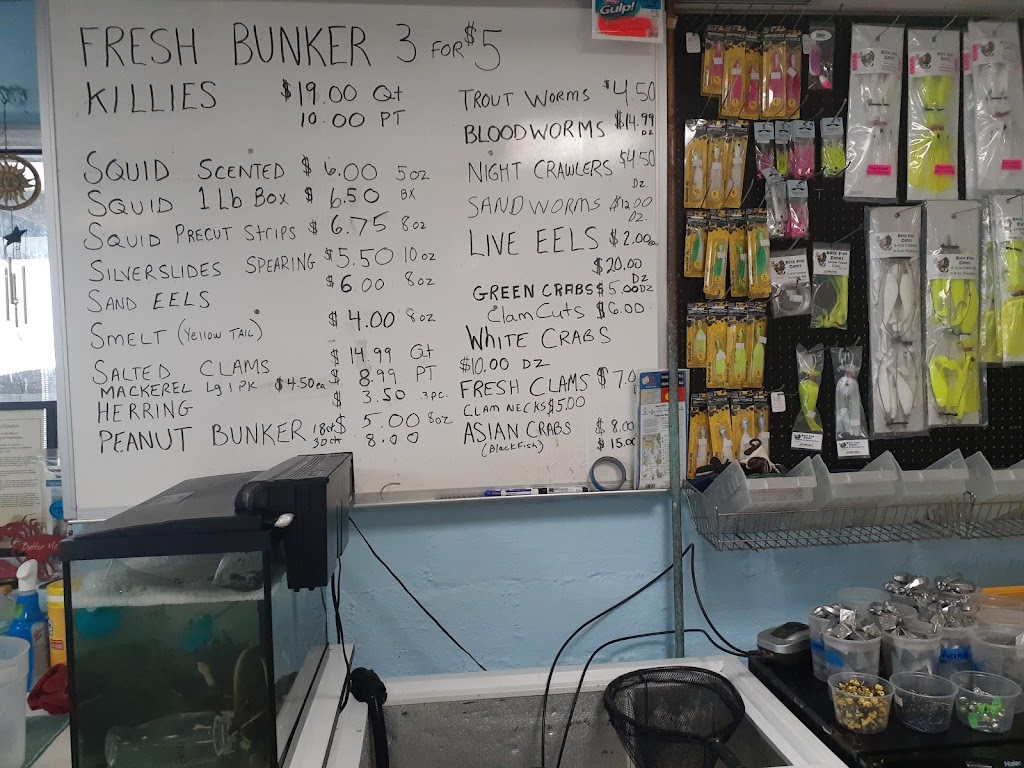 FRESH BUNKER 3 FOR $5
KILLIES $19.00 Qt
10.00 PT
SQUID SCENTED $ 6.00 5oz
SQUID 1 Lb Box $ 6.50 BX
SQUID PRECUT STRIPS $ 6.75 8oz
SILVERSLIDES SPEARING $5.50 10oz
SAND EELS $ 6.00 8oz
SMELT (Yellow TAIL) $ 4.00 8oz
SALTED CLAMS $ 14.99 Qt
$ 8.99 PT
MACKEREL Lg 1 PK $4.50ea
HERRING $ 3.50 3pc.
PEANUT BUNKER 18ct $ 5.00 8oz
30ct 8.00
TROUT WORMS $4.50
BLOODWORMS $14.99 DZ
NIGHT CRAWLERS $4.50 DZ.
SANDWORMS $12.00 DZ.
LIVE EELS $2.00ea.
$20.00 DZ
GREEN CRABS $5.00DZ
Clam Cuts $6.00
WHITE CRABS
$10.00 DZ
FRESH CLAMS $7.0
CLAM NECKS $5.00
ASIAN CRABS $ 8.00
(BlackFish) $ 15.00
Gulp!
Butter Me
Haier